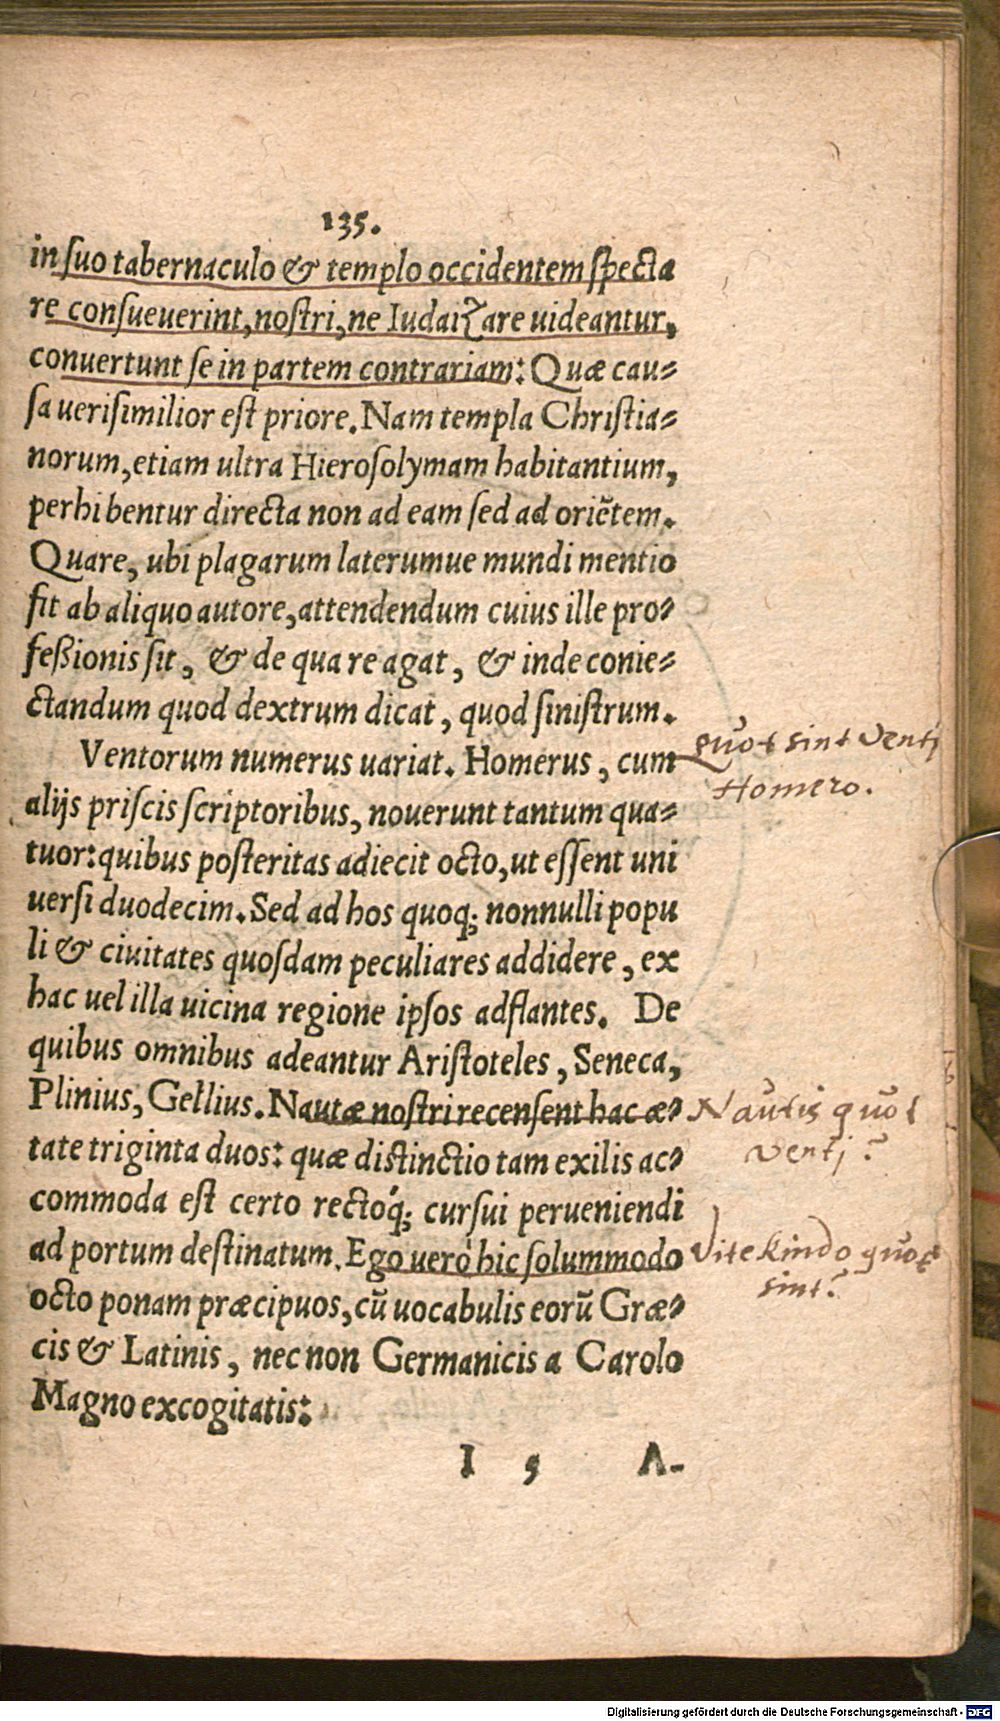 135.
in suo tabernaculo & templo occidentem specta
re consueuerint, nostri, ne Iudaizare uideantur,
conuertunt se in partem contrariam: Quæ cau-
sa uerisimilior est priore. Nam templa Christia-
norum, etiam ultra Hierosolymam habitantium,
perhibentur directa non ad eam sed ad oriētem.
Quare, ubi plagarum laterumue mundi mentio
fit ab aliquo autore, attendendum cuius ille pro-
feßionis sit, & de qua re agat, & inde conie-
ctandum quod dextrum dicat, quod sinistrum.
Ventorum numerus uariat. Homerus, cum
alijs priscis scriptoribus, nouerunt tantum qua-
tuor: quibus posteritas adiecit octo, ut essent uni
uersi duodecim. Sed ad hos quoq; nonnulli popu
li & ciuitates quosdam peculiares addidere, ex
hac uel illa uicina regione ipsos adflantes. De
quibus omnibus adeantur Aristoteles, Seneca,
Plinius, Gellius. Nautæ nostri recensent hac æ-
tate triginta duos: quæ distinctio tam exilis ac-
commoda est certo rectóq; cursui perueniendi
ad portum destinatum. Ego uerò hic solummodo
octo ponam præcipuos, cū uocabulis eorū Græ-
cis & Latinis, nec non Germanicis a Carolo
Magno excogitatis:
I 5 A-
quot sint Venti
Homero.
Nautis quot
Venti?
Vitekindo quot
sint?
Digitalisierung gefördert durch die Deutsche Forschungsgemeinschaft - DFG